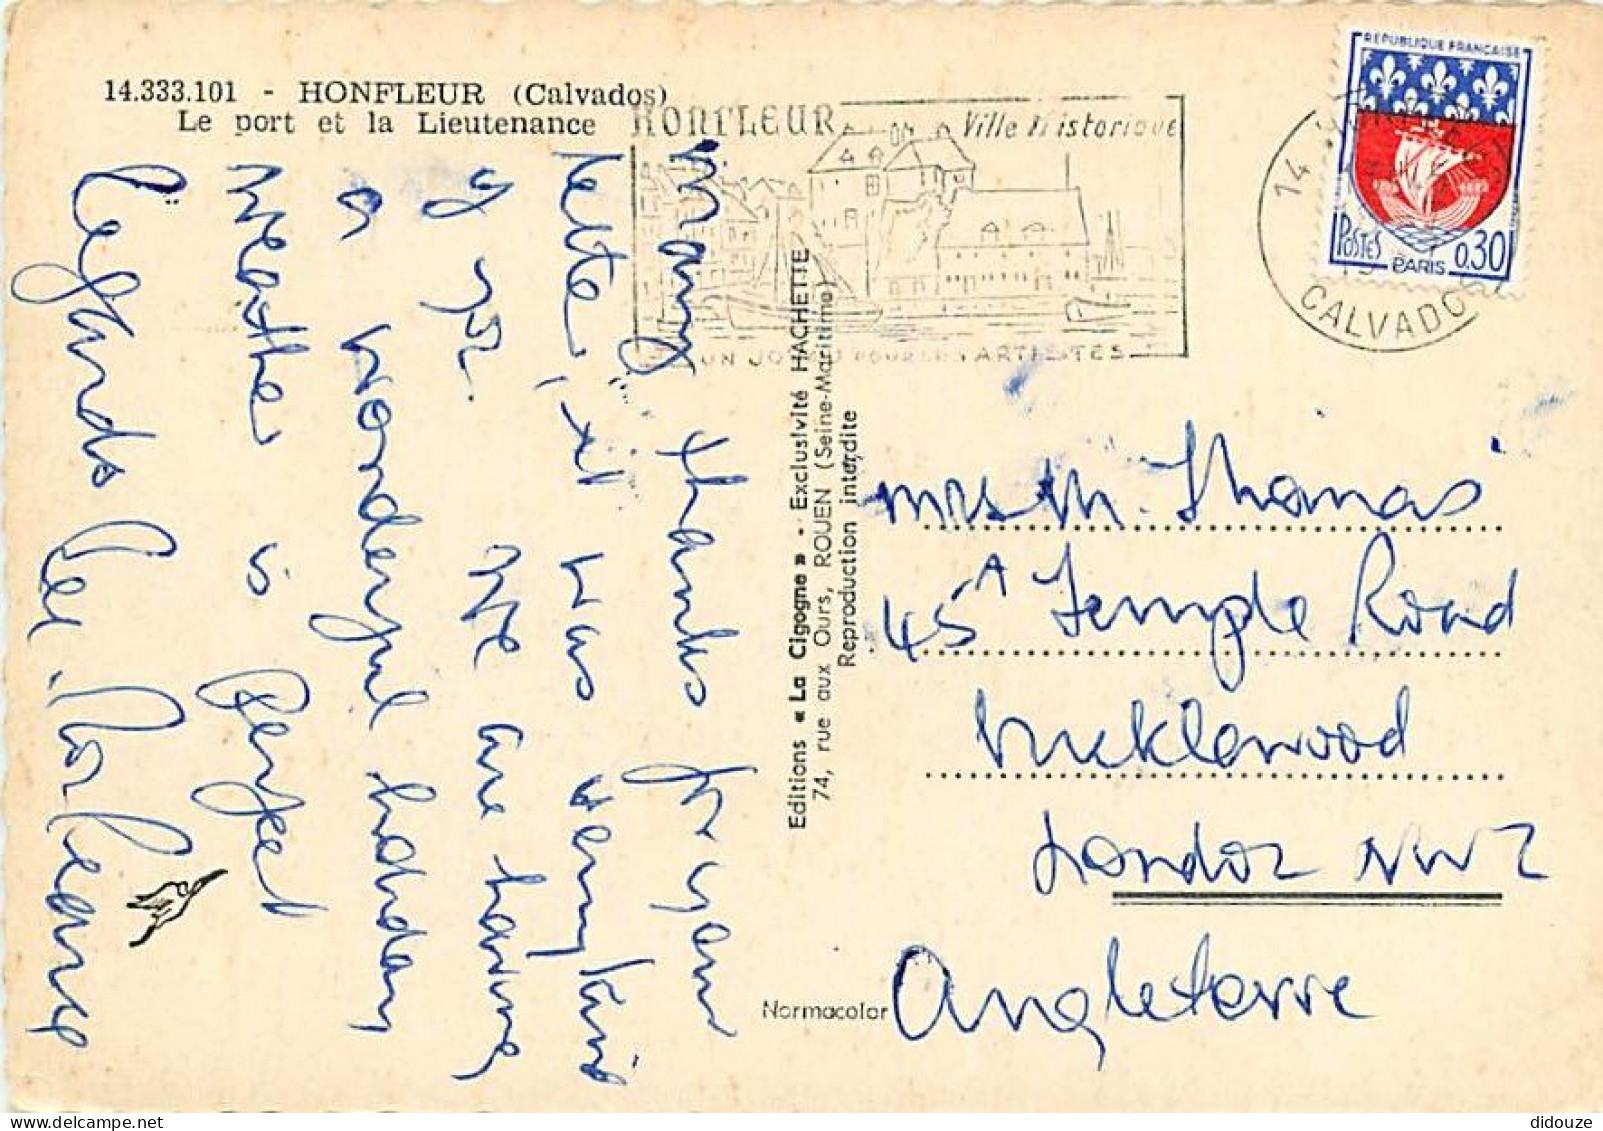 14.333.101 - HONFLEUR (Calvados)
Le port et la Lieutenance
HONFLEUR Ville Historique
UN JOYAU POUR LES ARTISTES
REPUBLIQUE FRANÇAISE
POSTES 0,30
PARIS
14
CALVADOS
Many thanks for your
letter, it was very kind
of you. We are having
a wonderful holiday
weather is perfect
Regards
Editions « La Cigogne » - Exclusivité HACHETTE
74, rue aux Ours, ROUEN (Seine-Maritime)
Reproduction interdite
Mrs M. Thomas
45A Temple Road
London NW2
Angleterre
Normacolor
didouze